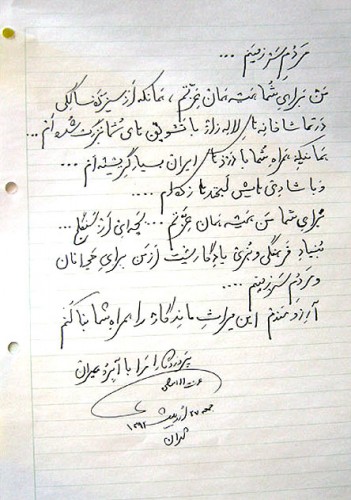 مردمِ سرزمینم ...
من برای شما همیشه همان عزتم، همانکه از سیزده سالگی
در تماشاخانه‌های لاله‌زار با تشویق‌های شما بزرگ شده‌ام ...
همانیکه همراه شما با دردهای ایران بسیار گریسته‌ام ...
و با شادی‌هایش لبخندها زده‌ام ....
برای شما من همیشه همان عزتم ... بچه‌ای از سنگلج ...
بنیادِ فرهنگی و هنری یادگاریست از من برای جوانان
و مردمِ سرزمینم ....
آرزومندم این میراثِ ماندگار را همراه شما بنا کنم
پروردگارا مرا با آبرو بمیران
عزت‌الله انتظامی
جمعه ۲۷ اردیبهشت ۱۳۹۲
تهران